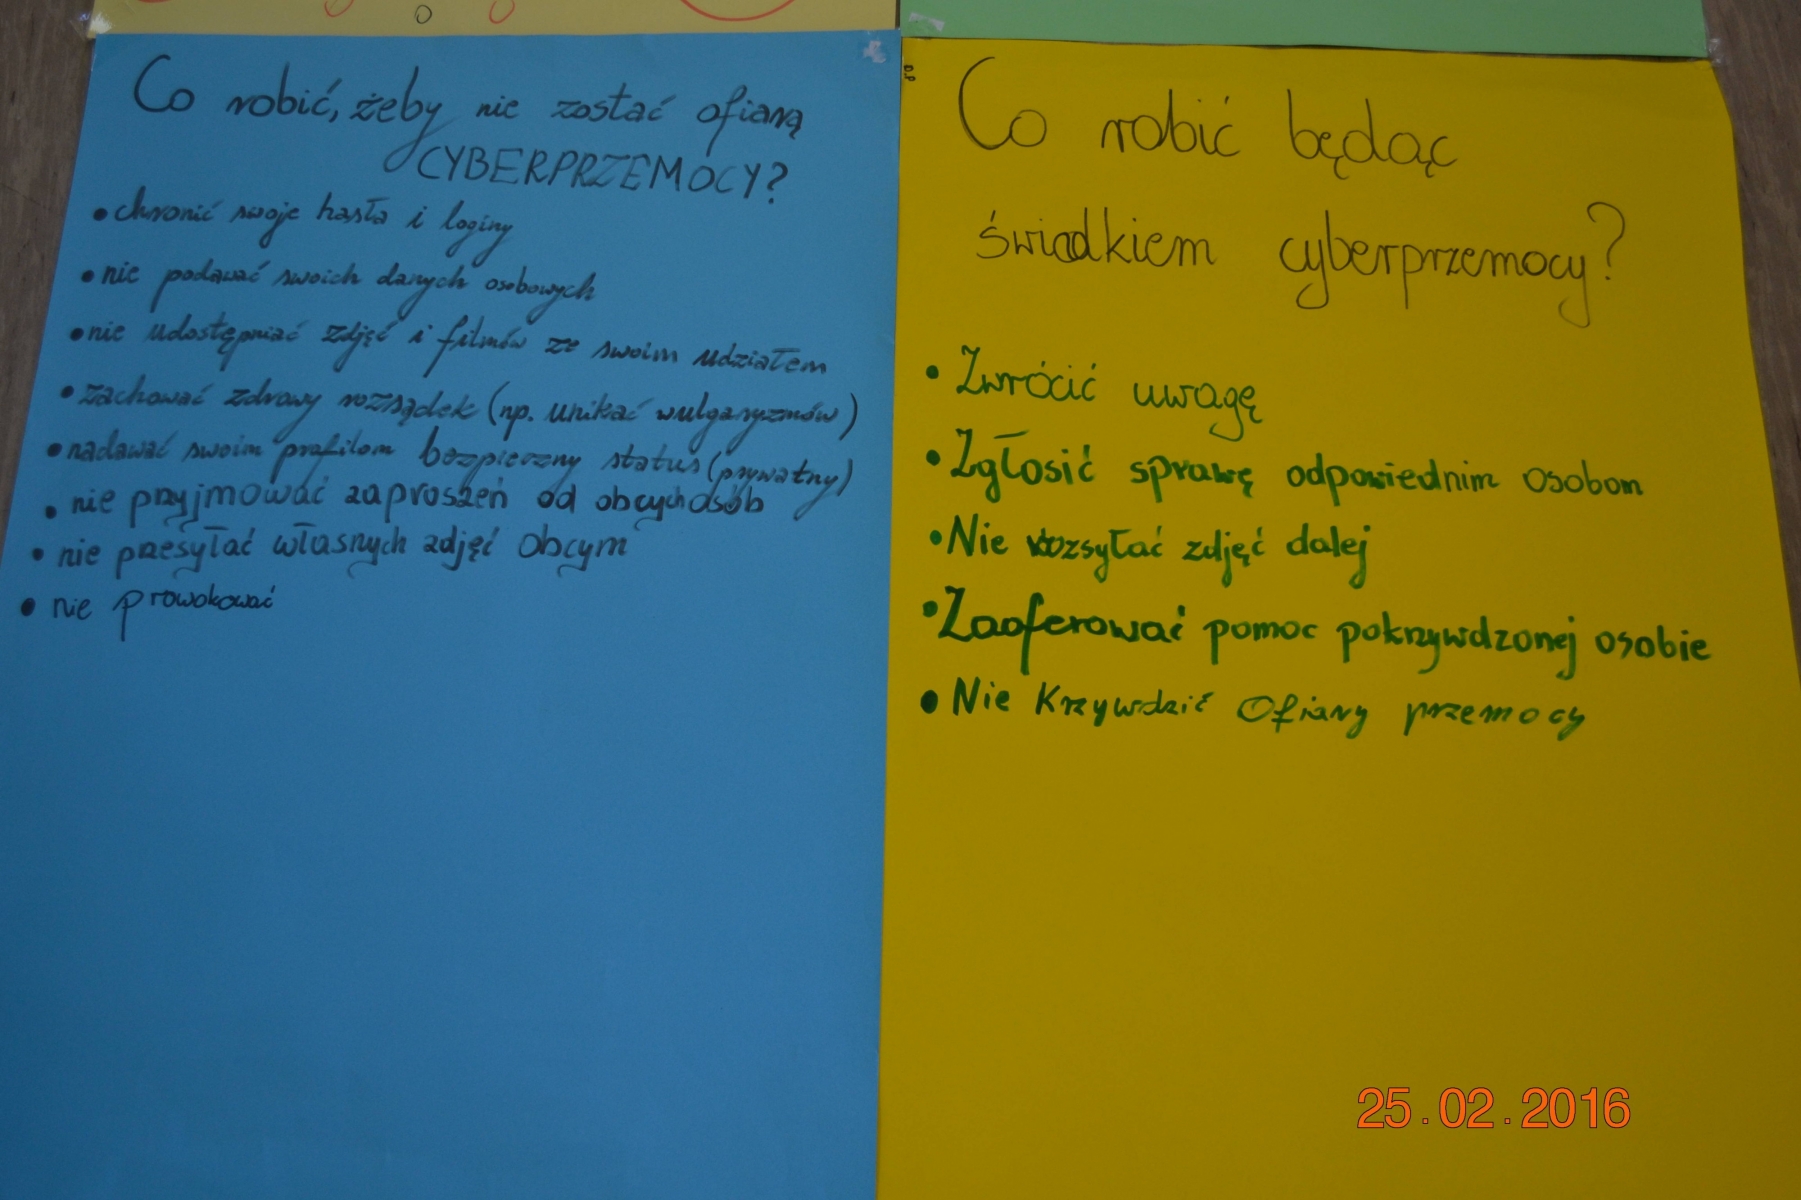 Co robić, żeby nie zostać ofiarą
CYBERPRZEMOCY?
• chronić swoje hasła i loginy
• nie podawać swoich danych osobowych
• nie udostępniać zdjęć i filmów ze swoim udziałem
• zachować zdrowy rozsądek (np. unikać wulgaryzmów)
• nadawać swoim profilom bezpieczny status (prywatny)
• nie przyjmować zaproszeń od obcych osób
• nie przesyłać własnych zdjęć obcym
• nie prowokować
Co robić będąc
świadkiem cyberprzemocy?
• Zwrócić uwagę
• Zgłosić sprawę odpowiednim osobom
• Nie rozsyłać zdjęć dalej
• Zaoferować pomoc pokrzywdzonej osobie
• Nie Krzywdzić Ofiary przemocy
25.02.2016